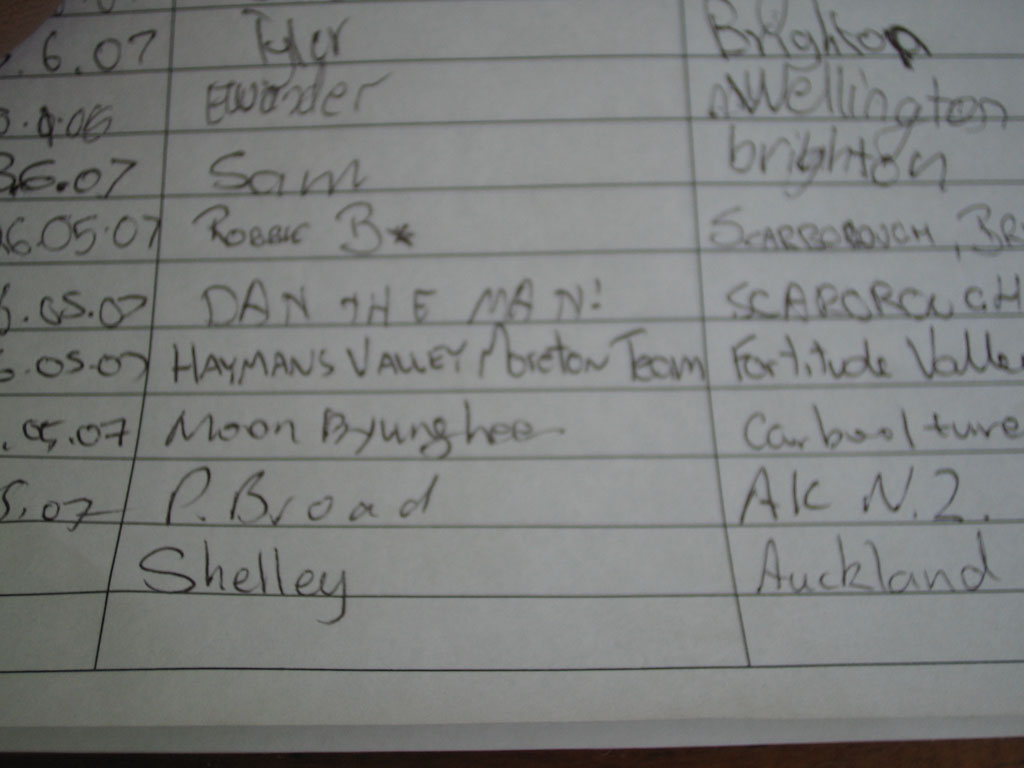 6.07 Tyler Brighton
Wellington
6.07 Sam brighton
6.05.07 ROBBIE B* SCARBOROUGH, BR
.05.07 DAN THE MAN! SCARORCUGH
.05.07 HAYMANS VALLEY Moreton Team Fortitude Valle
.05.07 Moon Byunghee Carboolture
5.07 P. Broad AK N.Z.
Shelley Auckland